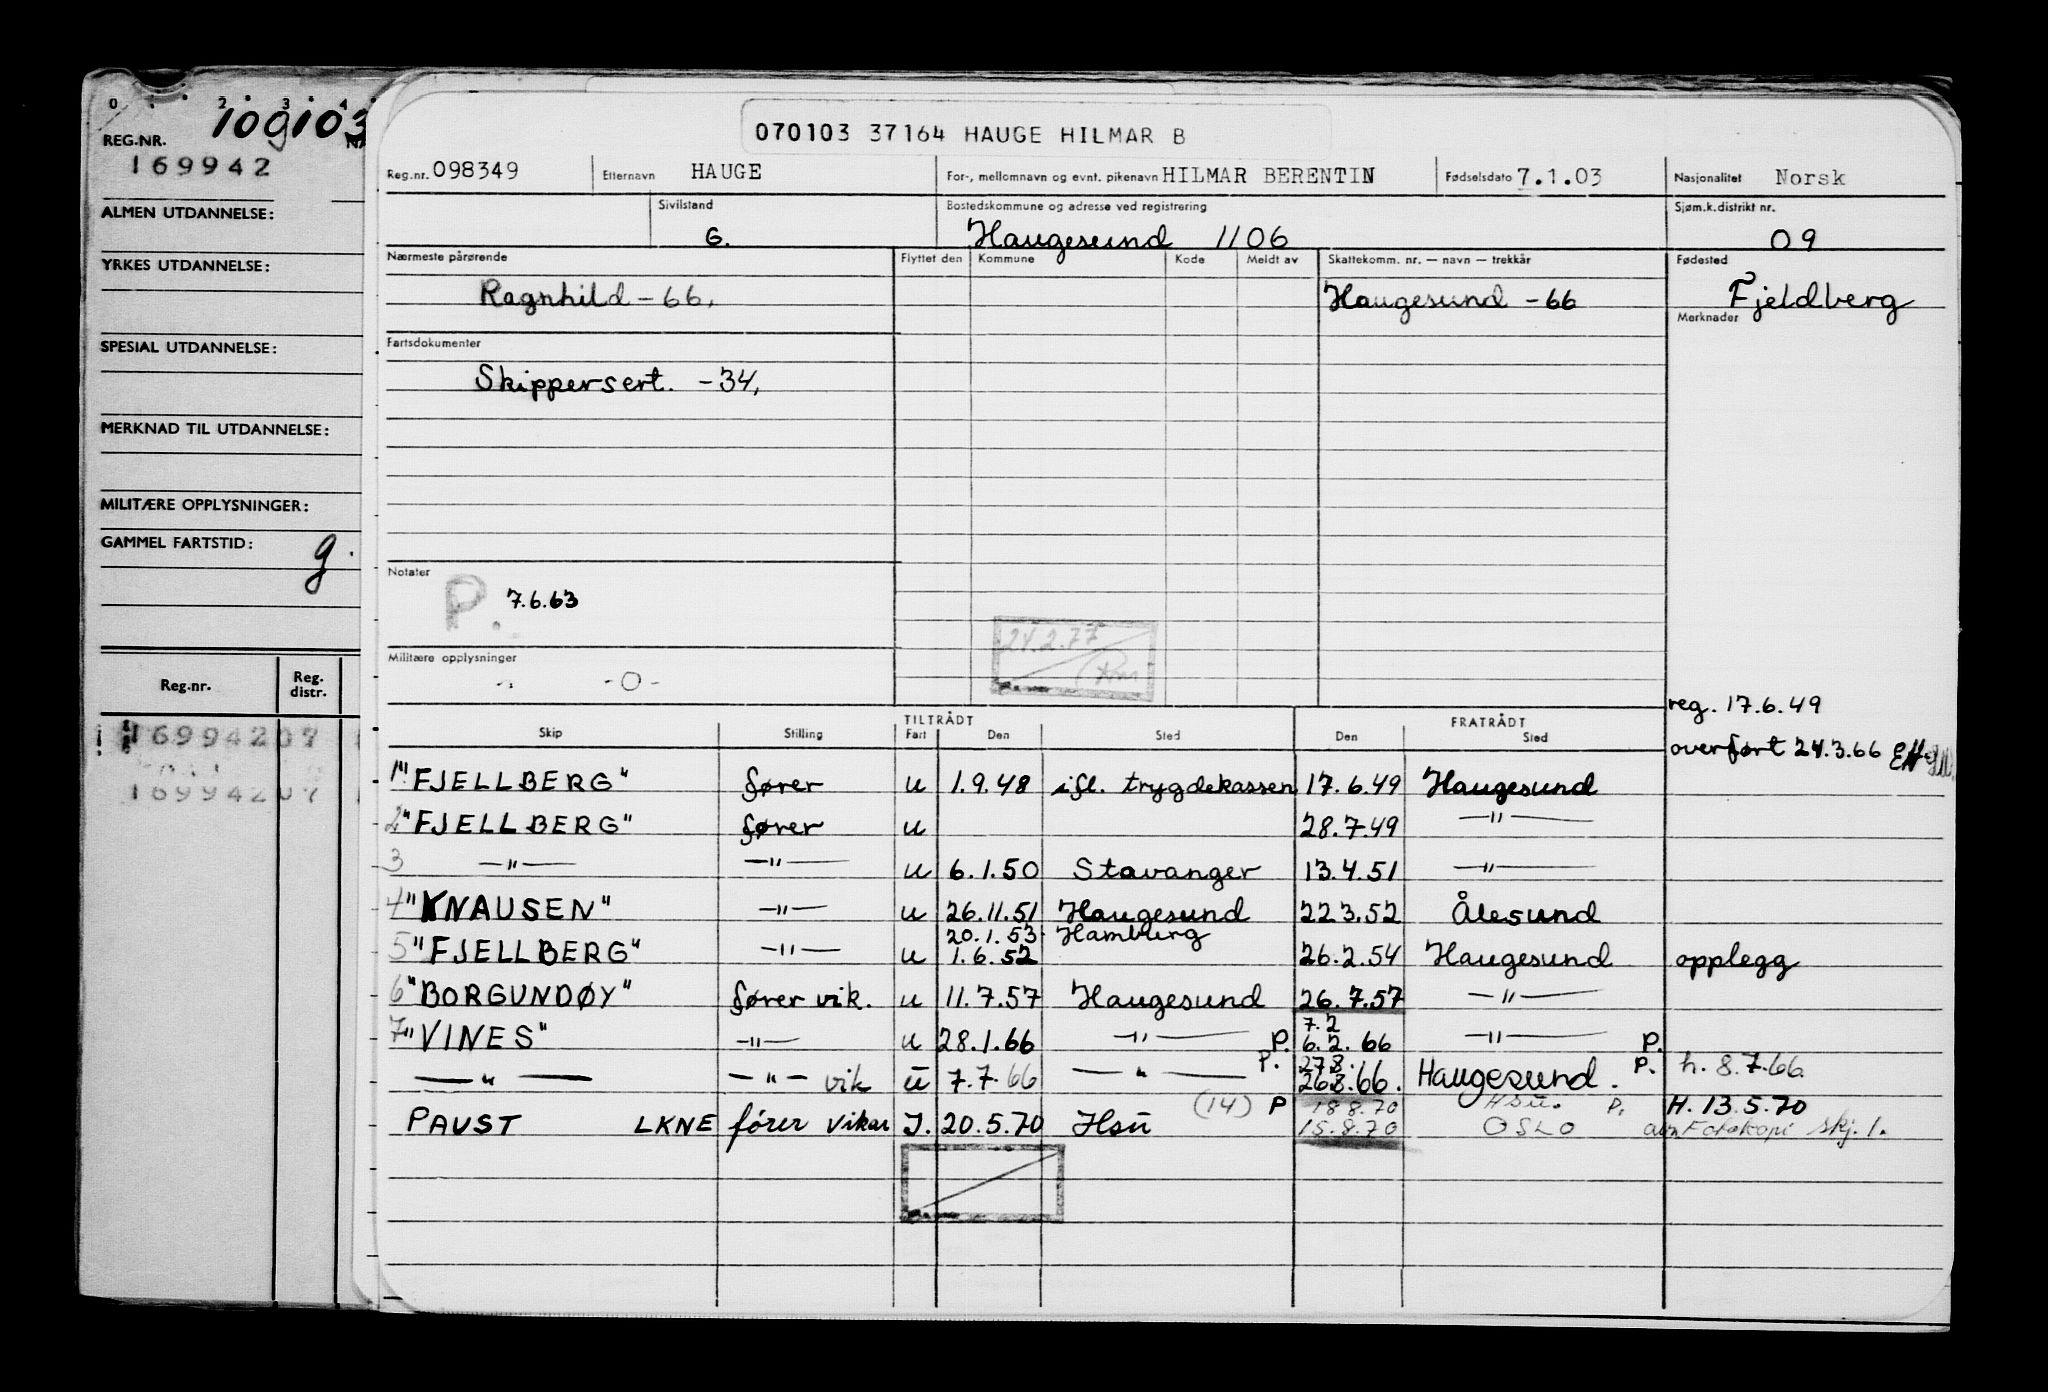 0 1 2 3 4
109103
REG.NR.
169942
ALMEN UTDANNELSE:
YRKES UTDANNELSE:
SPESIAL UTDANNELSE:
MERKNAD TIL UTDANNELSE:
MILITÆRE OPPLYSNINGER:
GAMMEL FARTSTID: g.
Reg.nr. Reg. distr.
169942 07
169942 07
070103 37164 HAUGE HILMAR B
Reg.nr. 098349 Etternavn HAUGE For-, mellomnavn og evnt. pikenavn HILMAR BERENTIN Fødselsdato 7.1.03 Nasjonalitet Norsk
Sivilstand Bostedskommune og adresse ved registrering Sjøm.k.distrikt nr.
G. Haugesund 1106 09
Nærmeste pårørende Flyttet den Kommune Kode Meldt av Skattekomm. nr. — navn — trekkår Fødested
Ragnhild - 66. Haugesund - 66 Fjeldberg
Merknader
Fartsdokumenter
Skippersert. - 34.
Notater
P. 7.6.63
24.2.77
Militære opplysninger
-0-
reg. 17.6.49
overført 24.3.66 EH
TILTRÅDT FRATRÅDT
Skip Stilling Fart Den Sted Den Sted
1 "FJELLBERG" fører u 1.9.48 ifl. trygdekassen 17.6.49 Haugesund
2 "FJELLBERG" fører u 28.7.49 —"—
3 —"— —"— u 6.1.50 Stavanger 13.4.51 —"—
4 "KNAUSEN" —"— u 26.11.51 Haugesund 22.3.52 Ålesund
20.1.53 Hamburg
5 "FJELLBERG" —"— u 1.6.52 26.2.54 Haugesund opplegg
6 "BORGUNDØY" fører vik. u 11.7.57 Haugesund 26.7.57 —"—
7.2
7 "VINES" —"— u 28.1.66 —"— P. 6.2.66 —"— P.
27.8.
—"— —"— vik u 7.7.66 —"— P. 26.8.66. Haugesund. P. h. 8.7.66
(14) P 18.8.70 HSU. P. H. 13.5.70
PAUST LKNE fører vikar I. 20.5.70 Hsu 15.8.70 OSLO Fotokopi skj. 1.